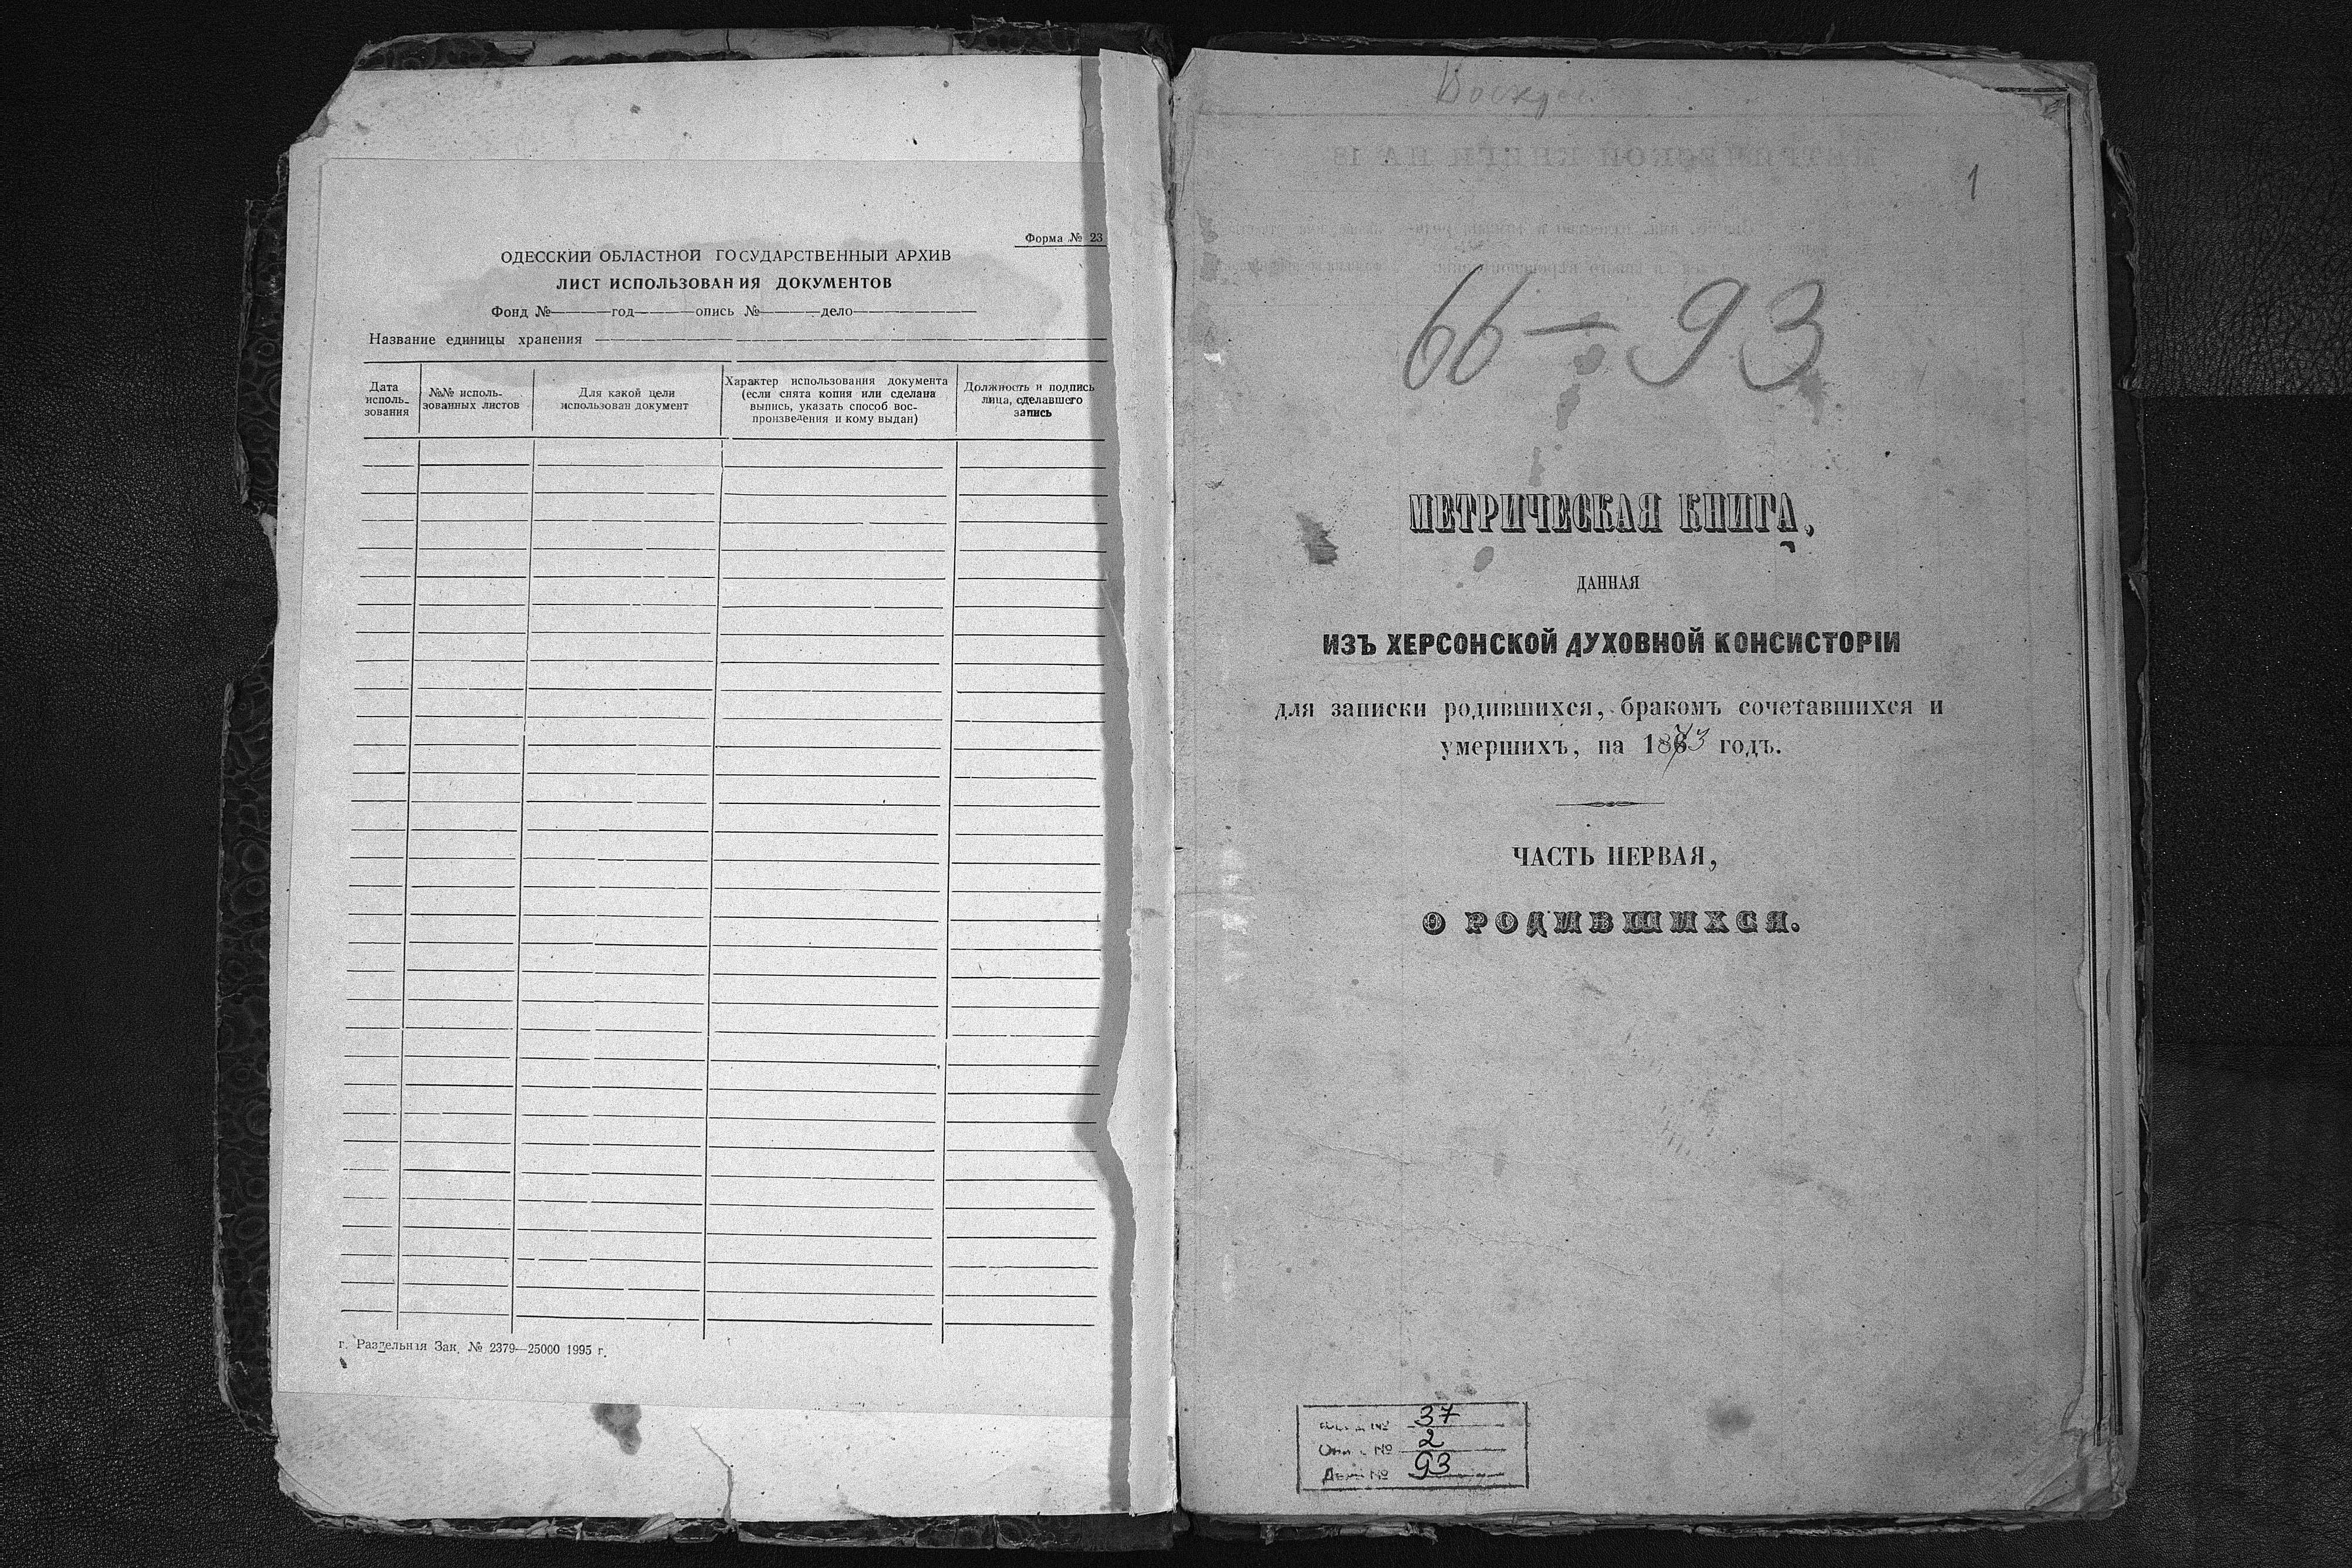 Форма № 23
ОДЕССКИЙ ОБЛАСТНОЙ ГОСУДАРСТВЕННЫЙ АРХИВ
ЛИСТ ИСПОЛЬЗОВАНИЯ ДОКУМЕНТОВ
Фонд №———год———опись №———дело———
Название единицы хранения
Дата исполь-
зования
№№ исполь-
зованных листов
Для какой цели
использован документ
Характер использования документа
(если снята копия или сделана
выпись, указать способ вос-
произведения и кому выдан)
Должность и подпись
лица, сделавшего
запись
г. Раздельная Зак. № 2379—25000 1995 г.
1
66—93
МЕТРИЧЕСКАЯ КНИГА,
ДАННАЯ
ИЗЪ ХЕРСОНСКОЙ ДУХОВНОЙ КОНСИСТОРІИ
для записки родившихся, бракомъ сочетавшихся и
умершихъ, на 1873 годъ.
ЧАСТЬ ПЕРВАЯ,
О РОДИВШИХСЯ.
№ 37
№ 2
№ 93